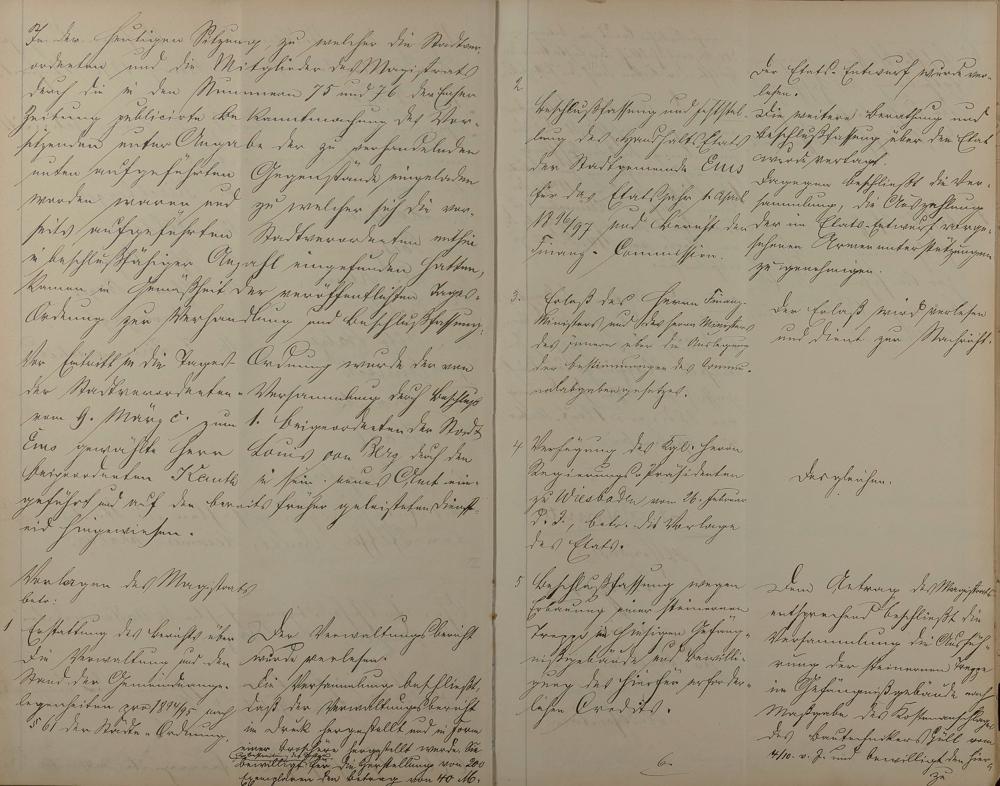 In der heutigen Sitzung, zu welcher die Stadtver-
ordneten und die Mitglieder des Magistrats
durch die in den Nummern 75 und 76 der Emser
Zeitung publicirte Bekanntmachung des Vor-
sitzenden unter Angabe der zu verhandelnden
unten aufgeführten Gegenstände eingeladen
worden waren und zu welcher sich die vor-
seits aufgeführten Stadtverordneten mithin
in beschlußfähiger Anzahl eingefunden hatten,
kamen in Gemäßheit der veröffentlichten Tages-
Ordnung zur Verhandlung und Beschlußfassung:
Vor Eintritt in die Tages-Ordnung wurde der von
der Stadtverordneten-Versammlung durch Beschluß
vom 9. März c. zum 1. Beigeordneten der Stadt
Ems gewählte Herr Louis von Berg durch den
Beigeordneten in sein neues Amt ein-
geführt und auf den bereits früher geleisteten Dienst-
eid hingewiesen.
Vorlagen des Magistrats
betr:
1
Erstattung des Berichts über
die Verwaltung und den
Stand der Gemeindeange-
legenheiten pro 1894/95 nach
§ 61 der Städte-Ordnung.
Der Verwaltungsbericht
wurde verlesen.
Die Versammlung beschließt,
daß der Verwaltungsbericht
im Druck hergestellt und in Form
einer Broschüre hergestellt werde. Sie
bewilligt für die Herstellung von 200
Exemplaren den Betrag von 40 M.
2
Beschlußfassung und Feststel-
lung des Haushalts-Etats
der Stadtgemeinde Ems
für das Etatsjahr 1. April
1896/97 und Bericht der
Finanz-Commission.
Der Etats-Entwurf wurde ver-
lesen.
Die weitere Berathung und
Beschlußfassung über den Etat
wurde vertagt.
Dagegen beschließt die Ver-
sammlung, die Auszahlung
der im Etats-Entwurf vorge-
sehenen Armenunterstützungen
zu genehmigen.
3.
Erlaß des Herrn Finanz-
Ministers und des Herrn Ministers
des Innern über die Auslegung
der Bestimmungen des Commu-
nalabgabengesetzes.
Der Erlaß wird verlesen
und dient zur Nachricht.
4
Verfügung des Kgl. Herrn
Regierungs-Präsidenten
zu Wiesbaden vom 26. Februar
d. J., betr. die Vorlage
des Etats.
Desgleichen.
5
Beschlußfassung wegen
Erbauung einer steinernen
Treppe im hiesigen Gefäng-
nißgebäude und Bewilli-
gung des hierfür erforder-
lichen Credits.
Dem Antrag des Magistrats
entsprechend beschließt die
Versammlung die Ausfüh-
rung der steinernen Treppe
im Gefängnißgebäude nach
Maßgabe des Kostenanschlags
des Bautechnikers vom
4/10. v. J. und bewilligt den hier-
zu
6.